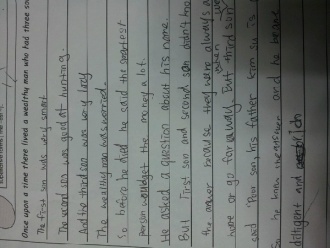 Once upon a time there lived a wealthy man who had three so
The first son was very smart.
The second son was good at hunting.
And the third son was very lazy
The wealthy man was worried.
So before he died he said the smartest
person would get the money a lot.
He asked a question about his name.
But first son and second son didn't kno
the answer because they were always a
when
were or go far away. But third son
said "Poor son, his father
So he knew and he became
diligent and rich